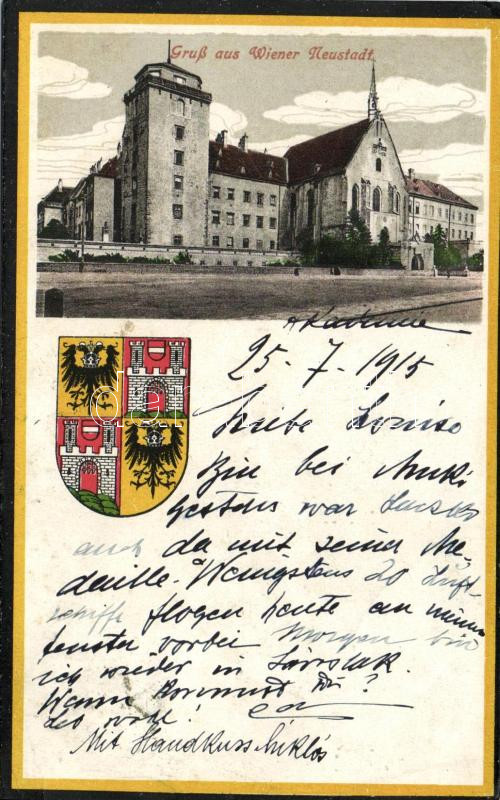 Gruß aus Wiener Neustadt
Akademie
25-7-1915
Liebe Louise
Bin bei Muki
gestern war
auch da mit seiner Me-
daille. Wenigstens 20 Luft-
schiffe flogen heute an meinem
fenster vorbei Morgen bin
ich wieder in
Wann kommst Du?
leb wohl!
Mit Handkuss Miklós